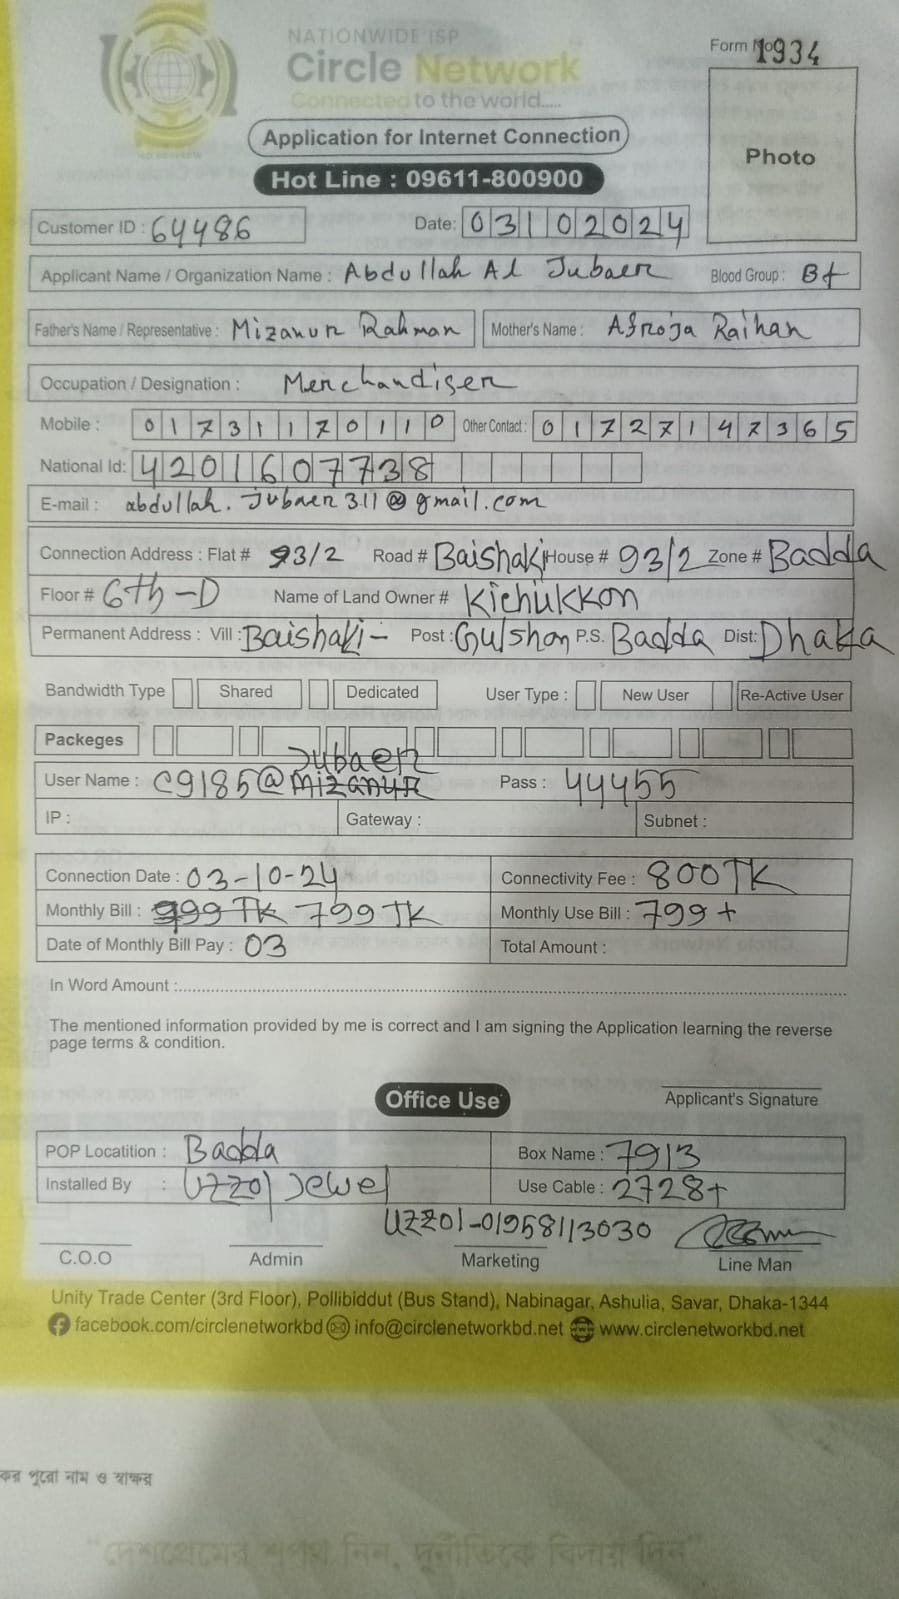 NATIONWIDE ISP
Circle Network
Connected to the world.....
Form No 1934
Photo
Application for Internet Connection
Hot Line : 09611-800900
Customer ID : 64486 Date: 03102024
Applicant Name / Organization Name : Abdullah Al Jubaer Blood Group : B+
Father's Name / Representative : Mizanur Rahman Mother's Name : Afroja Raihan
Occupation / Designation : Merchandiser
Mobile : 01731170110 Other Contact : 01727147365
National Id: 4201607738
E-mail : abdullah.jubaer311@gmail.com
Connection Address : Flat # 93/2 Road # Baishaki House # 93/2 Zone # Badda
Floor # 6th-D Name of Land Owner # Kichukkon
Permanent Address : Vill : Baishaki- Post : Gulshan P.S. Badda Dist: Dhaka
Bandwidth Type Shared Dedicated User Type : New User Re-Active User
Packeges
Jubaer
User Name : C9185@Mizanur Pass : 44455
IP : Gateway : Subnet :
Connection Date : 03-10-24 Connectivity Fee : 800TK
Monthly Bill : 999 TK 799 TK Monthly Use Bill : 799+
Date of Monthly Bill Pay : 03 Total Amount :
In Word Amount :
The mentioned information provided by me is correct and I am signing the Application learning the reverse
page terms & condition.
Office Use
Applicant's Signature
POP Locatition : Badda Box Name : 7913
Installed By : Uzzol Jewel Use Cable : 2728+
Uzzol-01958113030
C.O.O Admin Marketing Line Man
Unity Trade Center (3rd Floor), Pollibiddut (Bus Stand), Nabinagar, Ashulia, Savar, Dhaka-1344
facebook.com/circlenetworkbd info@circlenetworkbd.net www.circlenetworkbd.net
পুরো নাম ও স্বাক্ষর
"দেশপ্রেমের শপথ নিন, দুর্নীতিকে বিদায় দিন"